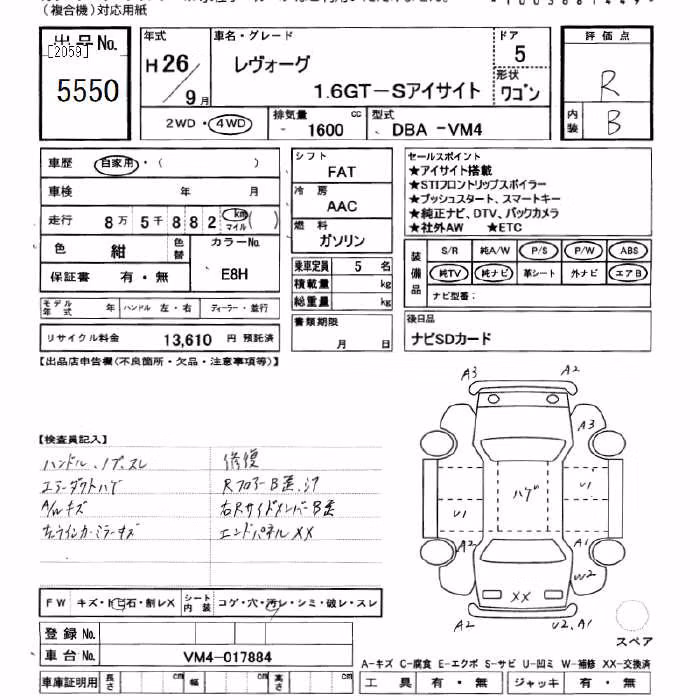 （複合機）対応用紙
出品No.
[2059]
5550
年式
H26/9月
車名・グレード
レヴォーグ
1.6GT－Sアイサイト
ドア
5
形状
ワゴン
2WD・4WD
排気量
1600 cc
型式
DBA －VM4
評価点
R
内装
B
車歴 自家用・（ ）
車検 年 月
走行 8万5千882 km マイル ( )
色 紺 色替
カラーNo.
E8H
保証書 有・無
モデル年式 年 ハンドル 左・右 ディーラー・並行
リサイクル料金 13,610 円 預託済
シフト
FAT
冷房
AAC
燃料
ガソリン
乗車定員 5 名
積載量 kg
総重量 kg
書類期限
月 日
セールスポイント
★アイサイト搭載
★STIフロントリップスポイラー
★プッシュスタート、スマートキー
★純正ナビ、DTV、バックカメラ
★社外AW ★ETC
装備品
S/R 純A/W P/S P/W ABS
純TV 純ナビ 革シート 外ナビ エアB
ナビ型番：
後日品
ナビSDカード
【出品店申告欄(不良箇所・欠品・注意事項等)】
【検査員記入】
ハンドル、ノブ、スレ
エアーダクトハゲ
A/Wキズ
左ウインカーミラーキズ
修復
右Rサイドメンバー B歪
エンドパネルXX
A3
A2
A3
ハゲ
U1
U1
A2
A1
W2
XX
A2
U2、A1
スペア
FW キズ・トビ石・割レX
シート内装 コゲ・穴・汚レ・シミ・破レ・スレ
登録No.
車台No. VM4-017884
A－キズ C－腐食 E－エクボ S－サビ U－凹ミ W－補修 XX－交換済
車庫証明用 長さ cm 幅 cm 高さ cm
工具 有・無 ジャッキ 有・無